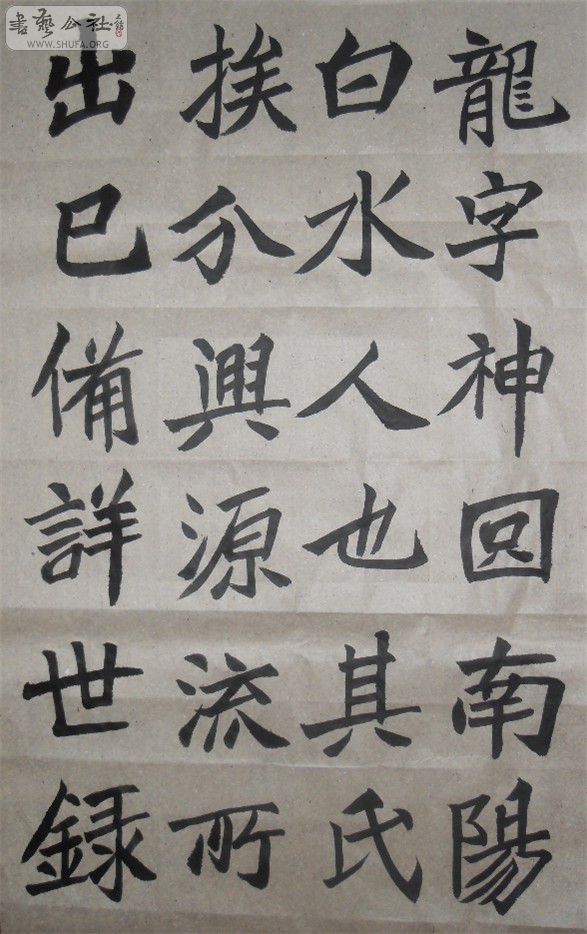 書藝公社
WWW.SHUFA.ORG
龍字神囧南陽
白水人也其氏
族分興源流所
出已備詳世録